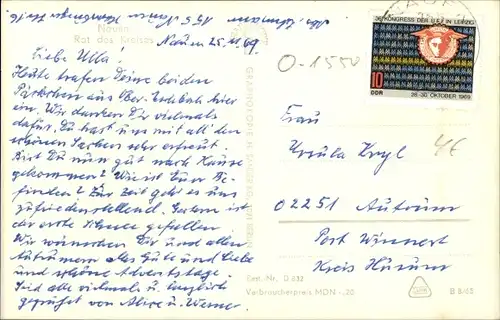 Nauen
Rat des Kreises
Nauen 25.11.69
Liebe Ulla!
Heute trafen Deine beiden
Päckchen aus Ober- hier
ein. Wir danken Dir vielmals
dafür. Du hast uns mit all den
schönen Sachen sehr erfreut.
Bist Du nun gut nach Hause
gekommen? Wie ist Euer Be-
finden? Zur Zeit geht es uns
zufriedenstellend. Gestern ist
der erste Schnee gefallen
Wir wünschen Dir und allen
Autrumern alles Gute und Liebe
und schöne Adventstage.
Seid alle vielmals u. herzlich
gegrüßt von Alice u. Werner
36. KONGRESS DER U.F.I. IN LEIPZIG
10
DDR
28.-30. OKTOBER 1969
O-1550
4€
Frau
Ursula Knyl
02251 Autrum
Post Winnert
Kreis Husum
Best. Nr. D 632
Verbraucherpreis MDN -,20
B 8/65